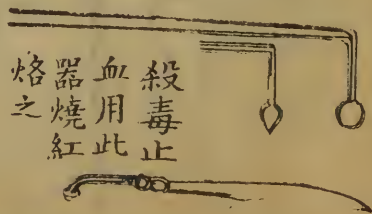 殺毒止
血用此
器燒紅
烙之